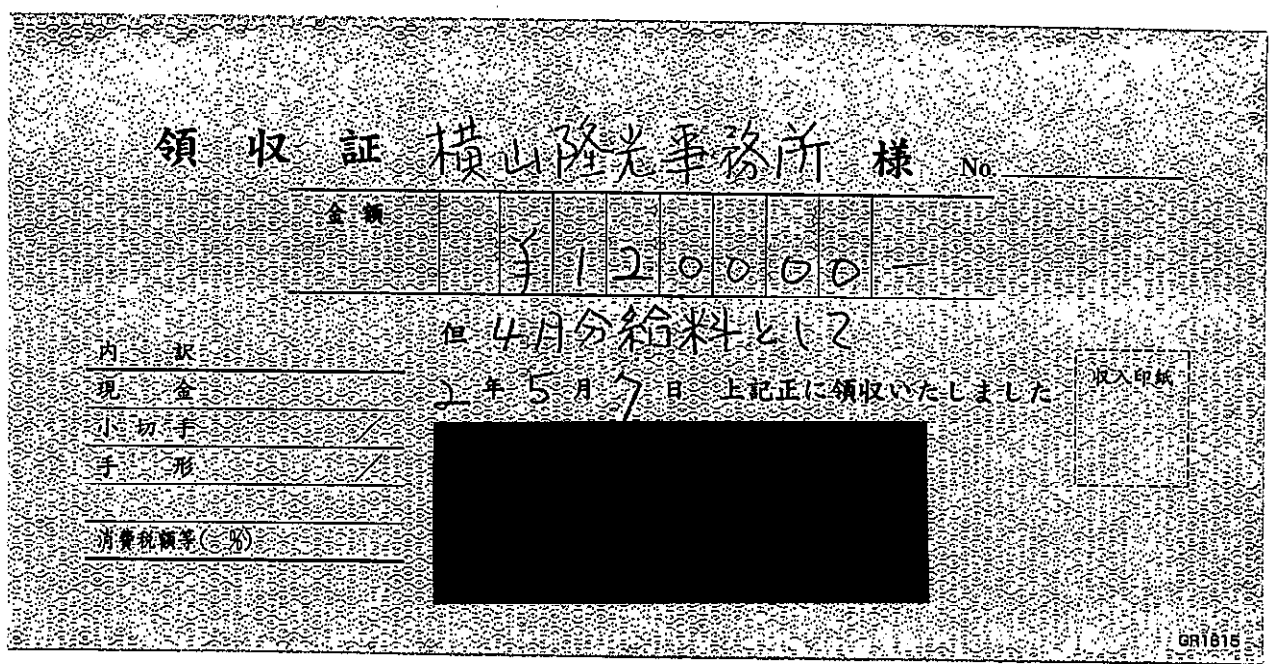 領収証 横山隆光事務所 様 No.
金額 ¥120000-
但 4月分給料として
2年5月7日 上記正に領収いたしました
内訳
現金
小切手 /
手形 /
消費税額等( %)
収入印紙
GR1615